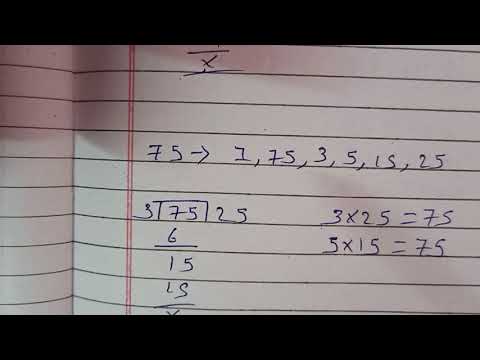 x
75 → 1, 75, 3, 5, 15, 25
3 75 25
6
15
15
x
3 × 25 = 75
5 × 15 = 75